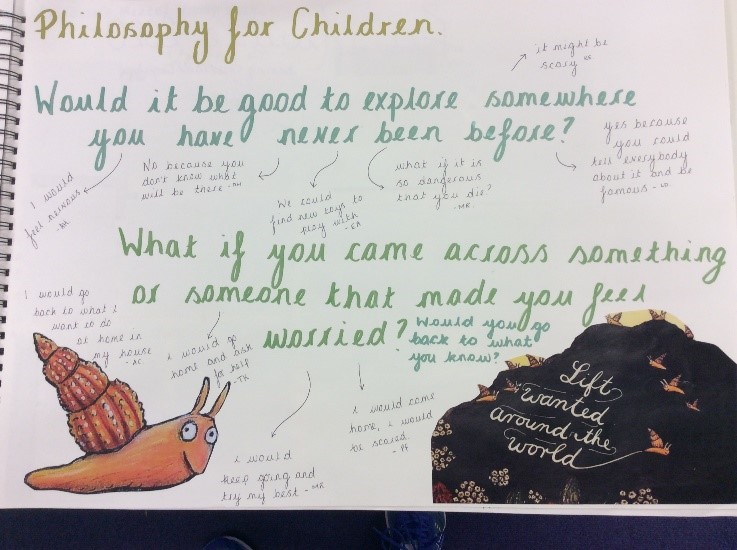 Philosophy for Children.
it might be
scary
Would it be good to explore somewhere
you have never been before?
I would
feel nervous
No because you
don't know what
will be there
We could
find new toys to
play with
what if it is
so dangerous
that you die?
- MR
yes because
you could
tell everybody
about it and be
famous
What if you came across something
or someone that made you feel
worried?
Would you go
back to what
you know?
I would go
back to what I
want to do
at home in
my house
- AC
i would go
home and ask
for help
- TK
i would
keep going and
try my best - MR
i would come
home, i would
be scared.
- PF
Lift
wanted
around the
world